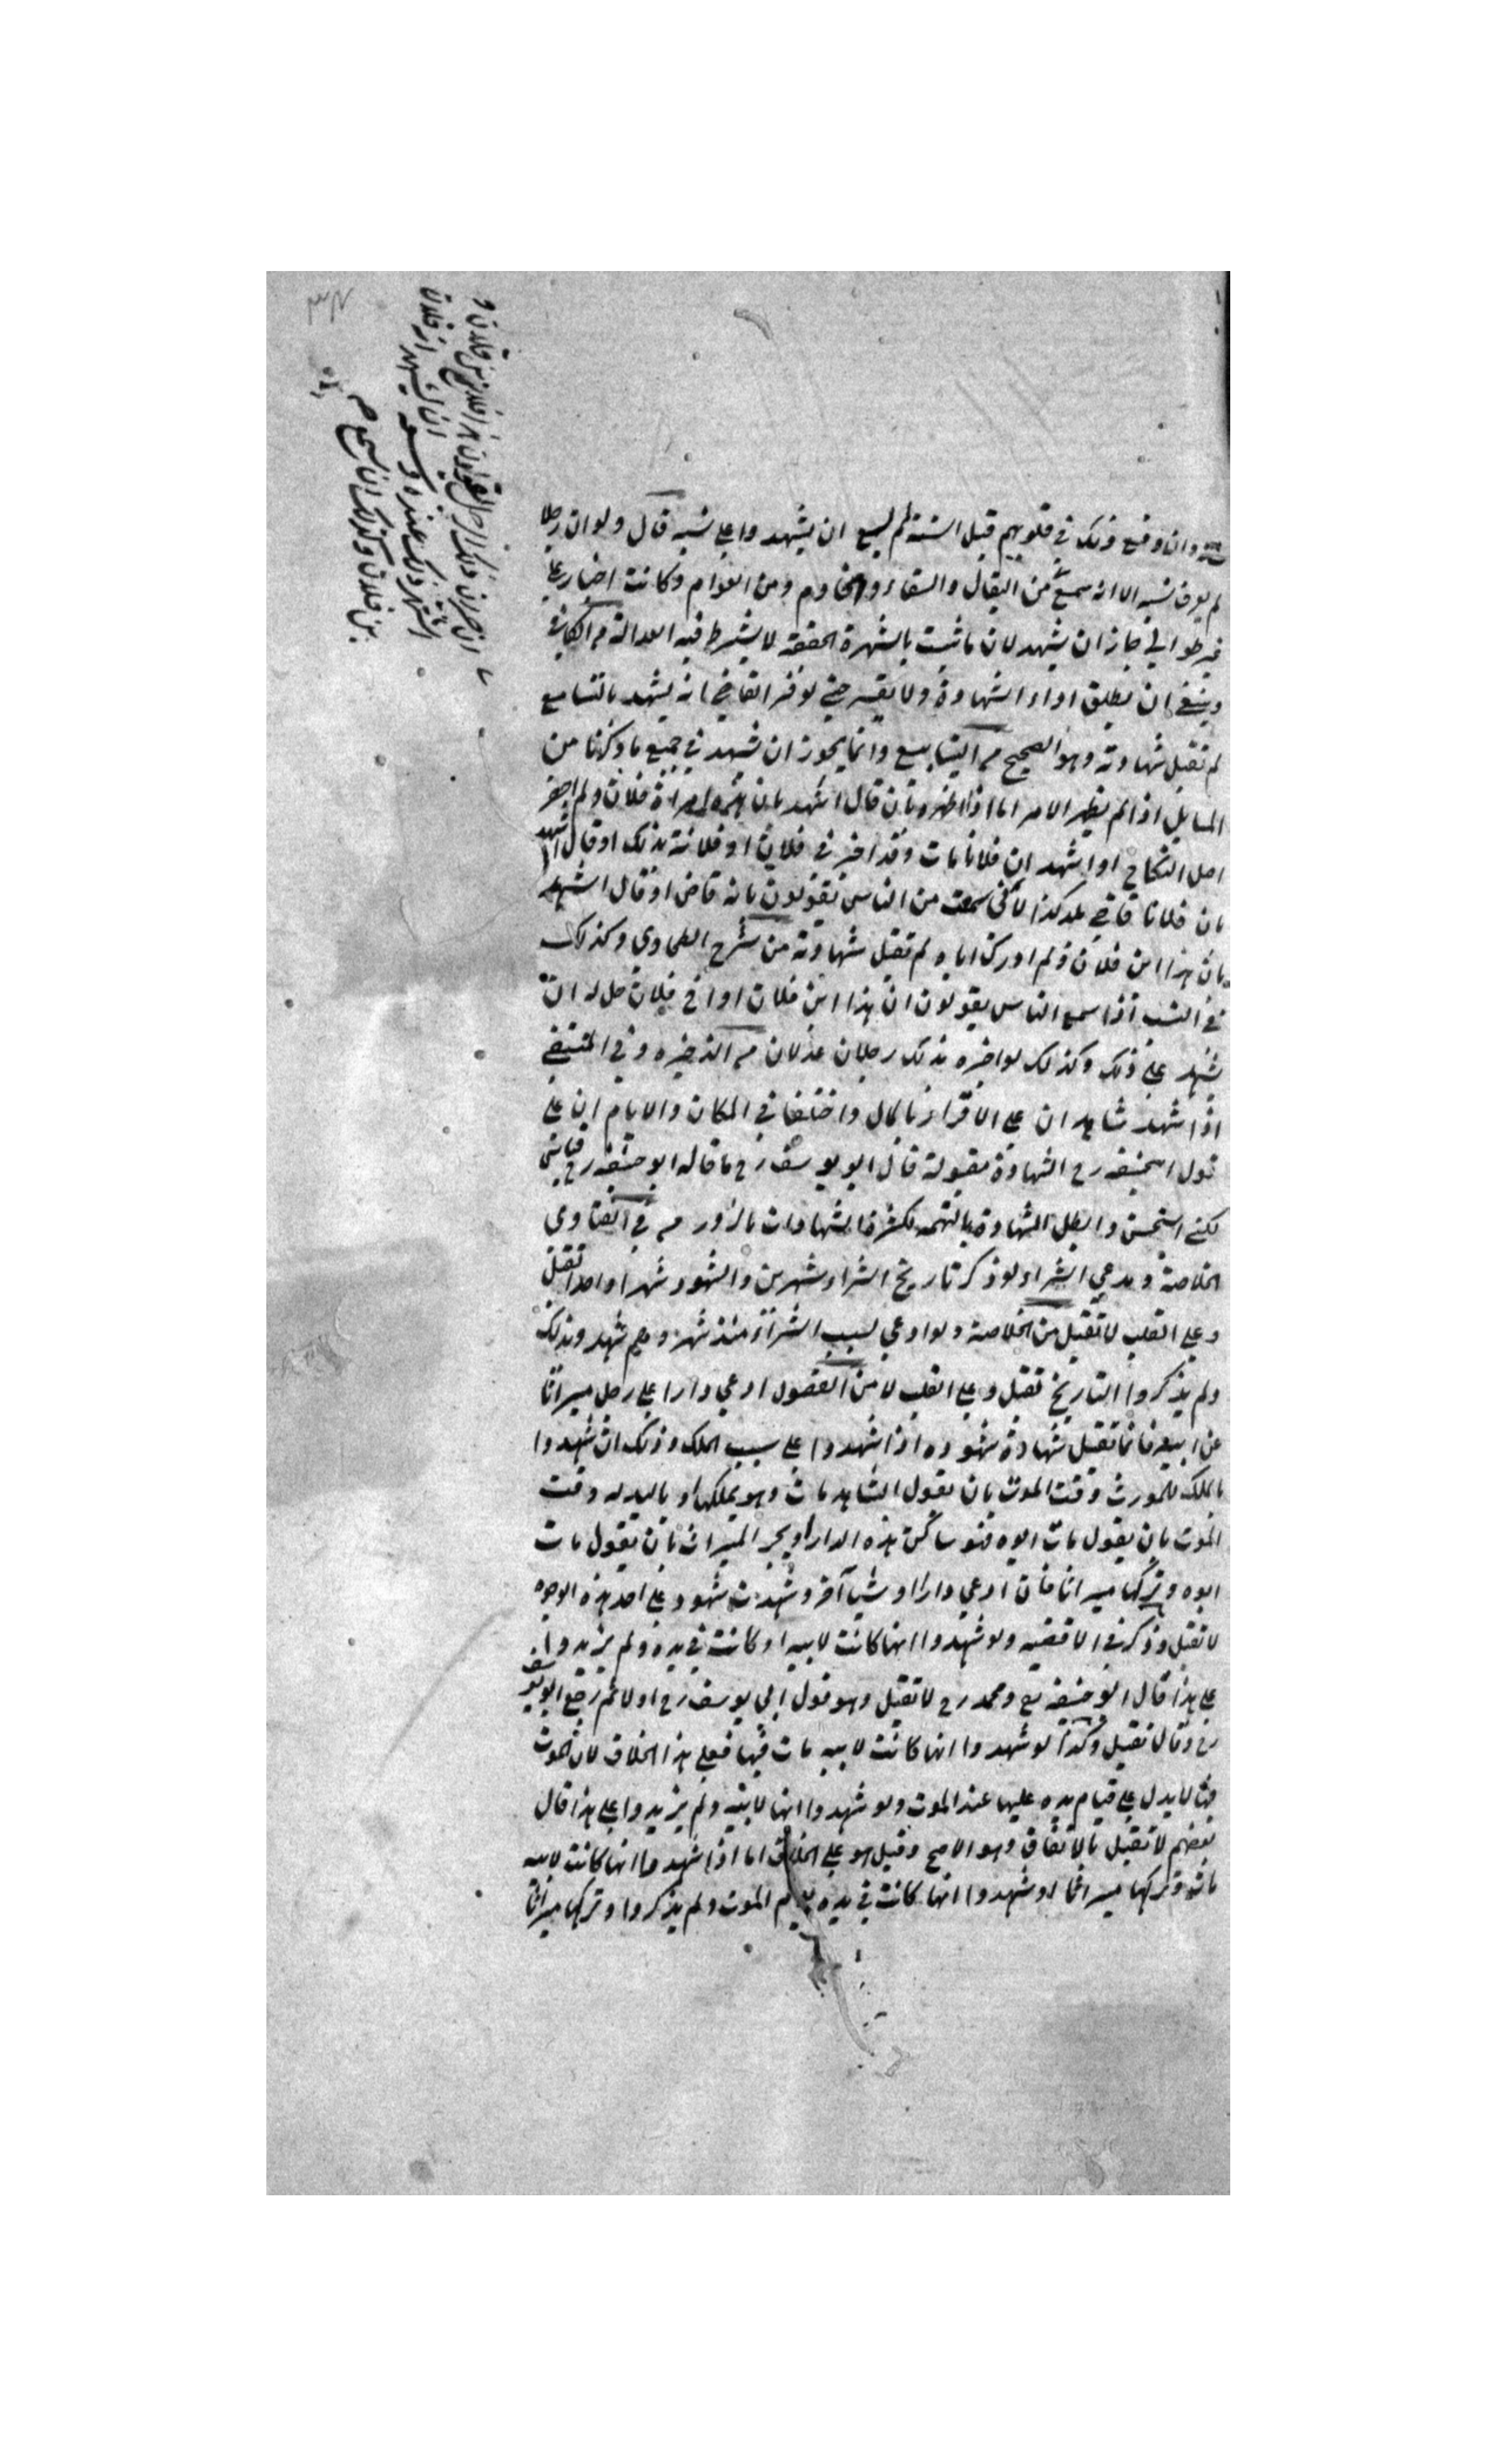 وان وقع ذلك في قلوبهم قبل السنة لم يسع ان يشهدوا على نسبه قال ولو ان رجلا
لم يعرف نسبه الا انه سمع من البقال والسقاء والخادم ومن العوام وكانت اخبار
غير طوالي جاز ان يشهد لان ما ثبت بالشهرة الحقيقة لا يشترط فيه العدالة
وينبغي ان يطلق اداء الشهادة ولا يفسر حتى لو فسر القاضي انه يشهد بالتسامع
لم تقبل شهادته وهو الصحيح من الينابيع وانما يجوز ان يشهد في جميع ما ذكرنا من
المسايل اذا لم يظهر الامر اما اذا اظهر وبان قال اشهد بان هذه امراة فلان ولم احضر
اصل النكاح او اشهد ان فلانا مات وقد اخبرني فلان او فلانة بذلك او قال اشهد
بان فلانا قاضي بلد كذا لانني سمعت من الناس يقولون بانه قاض او قال اشهد
بان هذا ابن فلان ولم ادرك اباه لم تقبل شهادته من شرح الطحاوي وكذلك
في النسب اذا سمع الناس يقولون ان هذا ابن فلان او اخ فلان حل له ان
يشهد على ذلك وكذلك لو اخبره بذلك رجلان عدلان من الذخيره وفي المنتقى
اذا شهد شاهدان على الاقرار بالمال واختلفا في المكان والايام ان على
قول ابيحنيفه رح الشهادة مقبولة قال ابو يوسف رح ما قاله ابو حنيفه رح قياس
لكني استحسن وابطل الشهادة بالتهمه لكثرة الشهادات بالزور من في الفتاوى
الخلاصة ومدعي الشراء لو ذكر تاريخ الشراء شهرين والشهود شهرا واحدا تقبل
وعلى القلب لا تقبل من الخلاصة ولو ادعى بسبب الشراء منذ شهر وهم شهد وبذلك
ولم يذكروا التاريخ تقبل وعلى القلب لا من الفصول ادعى دارا على رجل ميراثا
عن ابيه فانما تقبل شهادة شهوده اذا شهدوا على سبب الملك وذلك ان شهدوا
بالملك للمورث وقت الموت بان يقول الشاهد مات وهو يملكها او باليد له وقت
الموت بان يقول مات ابوه فهو ساكن هذه الدار او يجر الميراث بان يقول مات
ابوه وتركها ميراثا فان ادعى دارا او شيأ آخر وشهدت شهود على احد هذه الوجوه
لا تقبل وذكر في الاقضيه ولو شهدوا انها كانت لابيه او كانت في يده ولم يزيدوا
على هذا قال ابو حنيفه رح ومحمد رح لا تقبل وهو قول ابي يوسف رح اولا ثم رجع ابو يوسف
رح وقال تقبل وكذا لو شهدوا انها كانت لابيه مات فيها فعلى هذا الخلاف لان الموت
فيها لا يدل على قيام يده عليها عند الموت ولو شهدوا انها لابيه ولم يزيدوا على هذا قال
بعضهم لا تقبل بالاتفاق وهو الاصح وقيل هو على الخلاف اما اذا شهدوا انها كانت لابيه
مات وتركها ميراثا او شهدوا انها كانت في يده يوم الموت ولم يذكروا وتركها ميراثا
ان يشهد ان فلان
اشتهر ذلك عنده وسعه
بن فلان وكذلك ان سمع